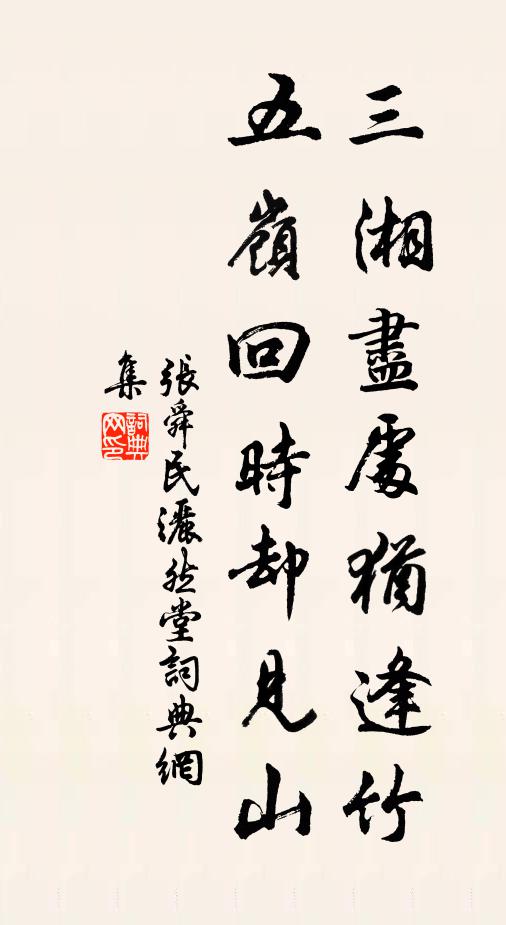 三湘盡處猶逢竹
五嶺回時却見山
張舜民灑然堂詞典網
集
詞典
網印